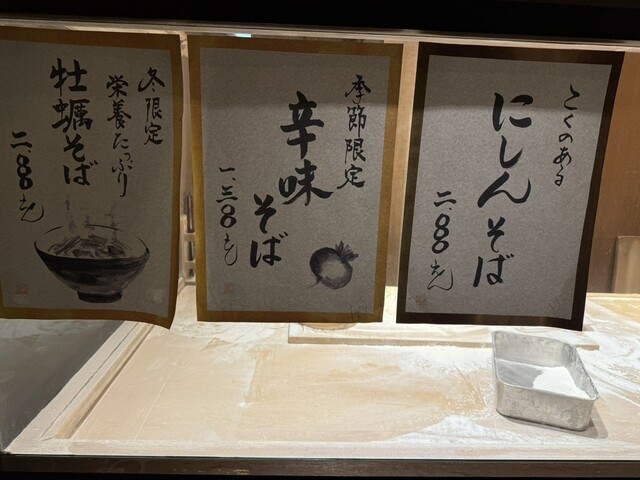 こくのある
にしんそば
二、〇〇〇えん
季節限定
辛味そば
一、三〇〇えん
冬限定
栄養たっぷり
牡蠣そば
二、〇〇〇えん